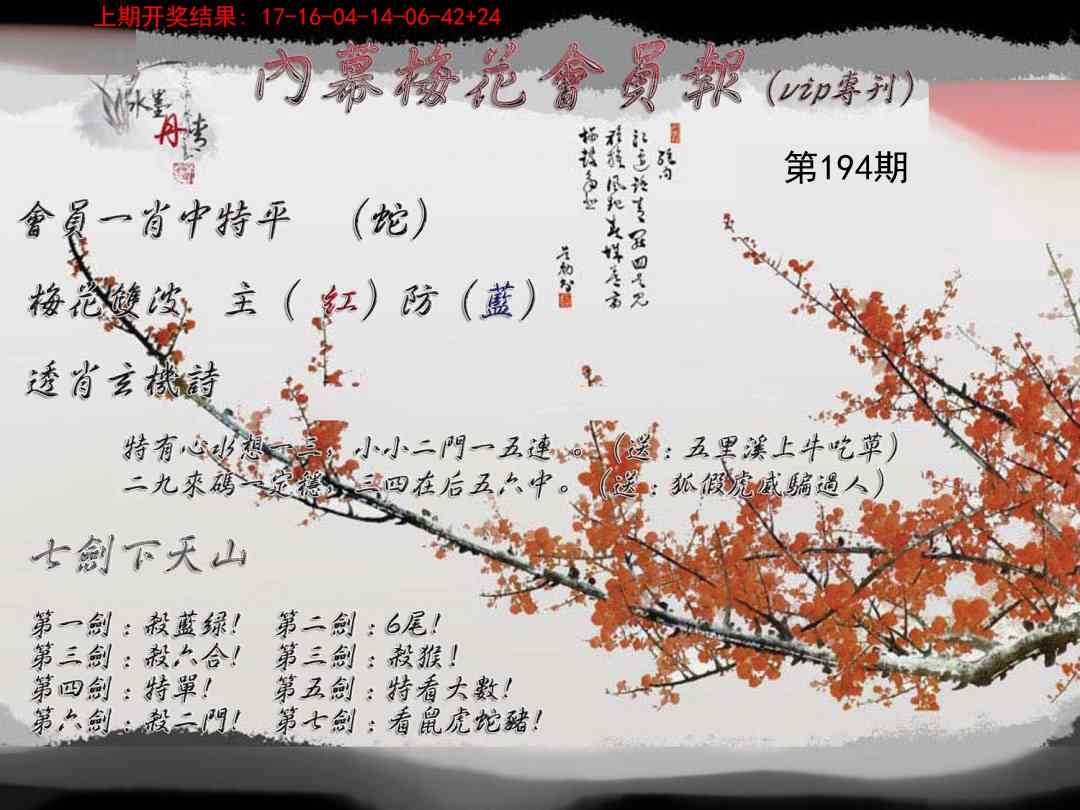 上期开奖结果: 17-16-04-14-06-42+24
內幕梅花會員報(vip專刊)
水墨
丹青
第194期
會員一肖中特平 (蛇)
梅花雙波 主(紅)防(藍)
透肖玄機詩
特有心水想一三,小小二門一五連。(送:五里溪上牛吃草)
二九來碼一定穩,三四在后五六中。(送:狐假虎威騙過人)
七劍下天山
第一劍:殺藍绿! 第二劍:6尾!
第三劍:殺六合! 第三劍:殺猴!
第四劍:特單! 第五劍:特看大數!
第六劍:殺二門! 第七劍:看鼠虎蛇豬!